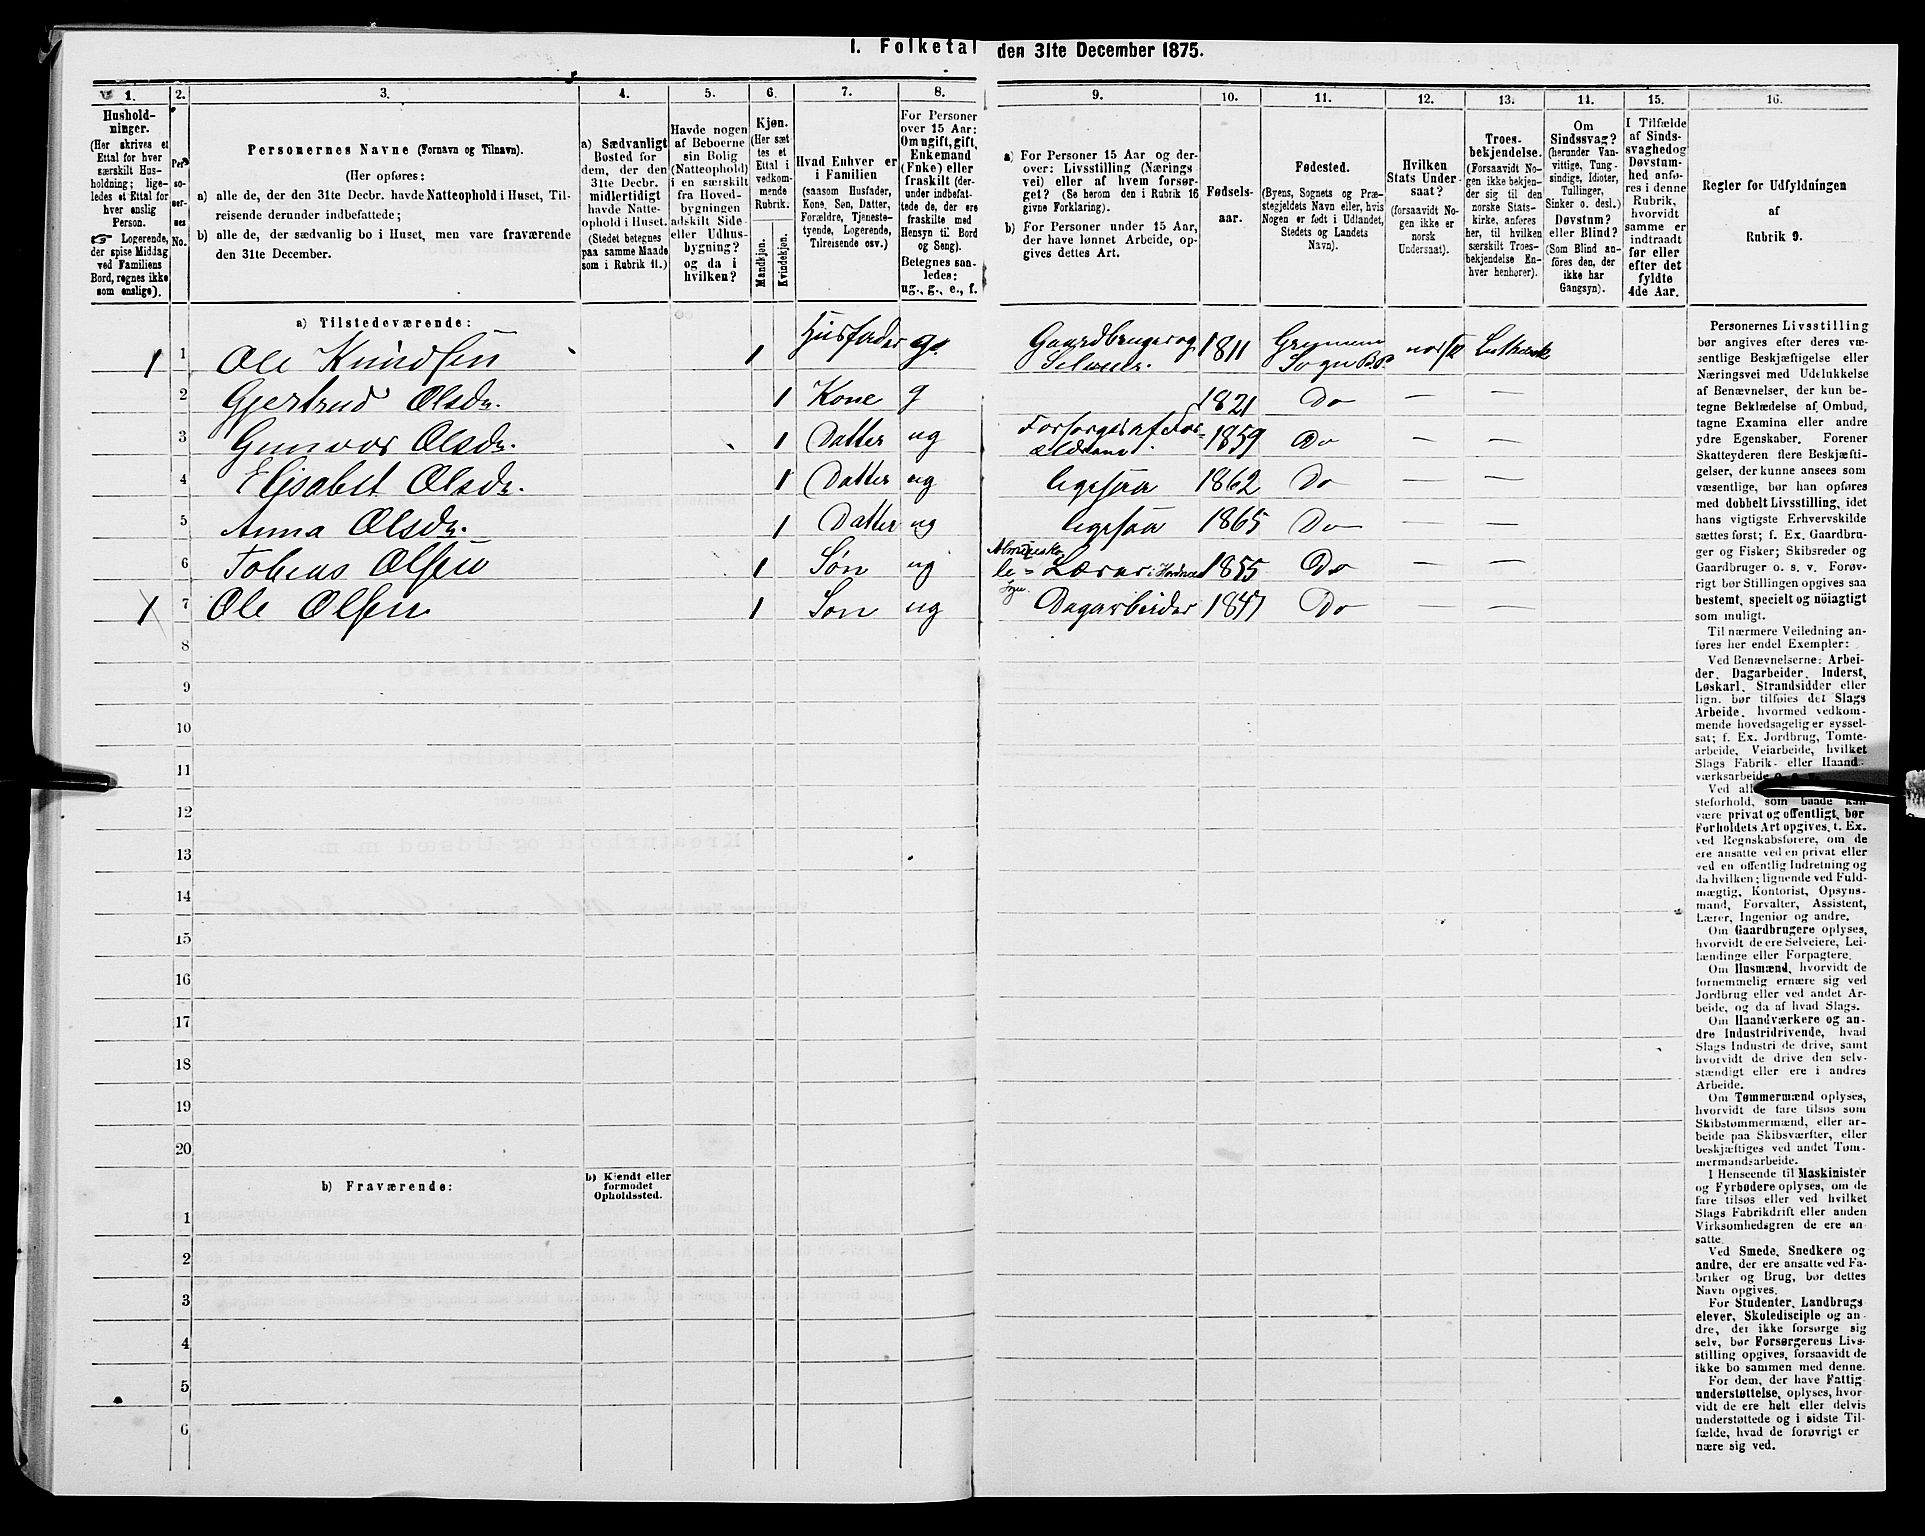 1. Folketal den 31te December 1875.
1. 2. 3. 4. 5. 6. 7. 8. 9. 10. 11. 12. 13. 14. 15. 16.
Hushold-
ninger.
(Her skrives et
Ettal for hver
særskilt Hus-
holdning; lige-
ledes et Ettal for
hver enslig
Person.
☞ Logerende,
der spise Middag
ved Familiens
Bord, regnes ikke
som enslige).
Per-
so-
ner-
nes
No.
Personernes Navne (Fornavn og Tilnavn).
(Her opføres:
a) alle de, der den 31te Decbr. havde Natteophold i Huset, Til-
reisende derunder indbefattede;
b) alle de, der sædvanlig bo i Huset, men vare fraværende
den 31te December.
a) Sædvanligt
Bosted for
dem, der den
31te Decbr.
midlertidigt
havde Natte-
ophold i Huset.
(Stedet betegnes
paa samme Maade
som i Rubrik 11.)
Havde nogen
af Beboerne
sin Bolig
(Natteophold)
i en særskilt
fra Hoved-
bygningen
adskilt Side-
eller Udhus-
bygning?
og da i
hvilken?
Kjøn.
(Her sæt-
tes et
Ettal i
vedkom-
mende
Rubrik.
Mandkjøn.
Kvindekjøn.
Hvad Enhver er
i Familien
(saasom Husfader,
Kone, Søn, Datter,
Forældre, Tjeneste-
tyende, Logerende,
Tilreisende osv.)
For Personer
over 15 Aar:
Om ugift, gift,
Enkemand
(Enke) eller
fraskilt (der-
under indbefat-
tede de, der ere
fraskilte med
Hensyn til Bord
og Seng).
Betegnes saa-
ledes:
ug., g., e., f.
a) For Personer 15 Aar og der-
over: Livsstilling (Nærings
vei) eller af hvem forsør-
get? (Se herom den i Rubrik 16
givne Forklaring).
b) For Personer under 15 Aar,
der have lønnet Arbeide, op-
gives dettes Art.
Fødsels-
aar.
Fødested.
(Byens, Sognets og Præ-
stegjeldets Navn eller, hvis
Nogen er født i Udlandet,
Stedets og Landets
Navn).
Hvilken
Stats Under-
saat?
(forsaavidt No-
gen ikke er
norsk
Undersaat).
Troes-
bekjendelse.
(Forsaavidt No-
gen ikke bekjen-
der sig til den
norske Stats-
kirke, anføres
her, til hvilken
særskilt Troes-
bekjendelse En-
hver henhører).
Om
Sindssvag?
(herunder Van-
vittige, Tung-
sindige, Idioter,
Tullinger,
Sinker o. desl.)
Døvstum?
eller Blind?
(Som Blind an-
føres den, der
ikke har
Gangsyn).
I Tilfælde
af Sinds-
svaghed og
Døvstum-
hed anfø-
res i denne
Rubrik,
hvorvidt
samme er
indtraadt
før eller
efter det
fyldte
4de Aar.
Regler for Udfyldningen
af
Rubrik 9.
a) Tilstedeværende:
1 1 Ole Knudsen 1 Husfader g. Gaardbruger og Selveier 1811 Sogn norsk Luthersk
2 Gjertrud Olsdr. 1 Kone g 1821 Do — —
3 Gunvor Olsdr. 1 Datter ug Forsørges af For-ældrene 1859 Do — —
4 Elisabet Olsdr. 1 Datter ug ligesaa 1862 Do — —
5 Anna Olsdr. 1 Datter ug ligesaa 1865 Do — —
6 Tobias Olsen 1 Søn ug Lærer i 1855 Do — —
1 7 Ole Olsen 1 Søn ug Dagarbeider 1847 Do — —
8
9
10
11
12
13
14
15
16
17
18
19
20
b) Fraværende:
b) Kjendt eller
formodet
Opholdssted.
1
2
3
4
5
6
Personernes Livsstilling
bør angives efter deres væ-
sentlige Beskjæftigelse eller
Næringsvei med Udelukkelse
af Benævnelser, der kun be-
tegne Beklædelse af Ombud,
tagne Examina eller andre
ydre Egenskaber. Forener
Skatteyderen flere Beskjæfti-
gelser, der kunne ansees som
væsentlige, bør han opføres
med dobbelt Livsstilling, idet
hans vigtigste Erhvervskilde
sættes først; f. Ex. Gaardbru-
ger og Fisker; Skibsreder og
Gaardbruger o. s. v. Forøv-
rigt bør Stillingen opgives saa
bestemt, specielt og nöiagtigt
som muligt.
Til nærmere Veiledning an-
føres her endel Exempler:
Ved Benævnelserne: Arbei-
der, Dagarbeider, Inderst,
Løskarl, Strandsidder eller
lign. bør tilføies det Slags
Arbeide, hvormed vedkom-
mende hovedsagelig er syssel-
sat; f. Ex. Jordbrug, Tomte-
arbeide, Veiarbeide, hvilket
Slags Fabrik- eller Haand-
værksarbeide
Ved
steforhold, som baade kan
være privat og offentligt, bør
Forholdets Art opgives, t. Ex.
ved Regnskabsførere, om de
ere ansatte ved en privat eller
ved en offentlig Indretning og
da hvilken; lignende ved Fuld-
mægtig, Kontorist, Opsyns-
mand, Forvalter, Assistent,
Lærer, Ingeniør og andre.
Om Gaardbrugere oplyses,
hvorvidt de ere Selveiere, Lei-
lændinge eller Forpagtere.
Om Husmænd, hvorvidt de
fornemmelig ernære sig ved
Jordbrug eller ved andet Ar-
beide, og da af hvad Slags.
Om Haandværkere og an-
dre Industridrivende, hvad
Slags Industri de drive, samt
hvorvidt de drive den selv-
stændigt eller ere i andres
Arbeide.
Om Tømmermænd oplyses,
hvorvidt de fare tilsøs som
Skibstømmermænd, eller ar-
beide paa Skibsværfter, eller
beskjæftiges ved andet Tøm-
mermandsarbeide.
I Henseende til Maskinister
og Fyrbødere oplyses, om de
fare tilsøs eller ved hvilket
Slags Fabrikdrift eller anden
Virksomhedsgren de ere an-
satte.
Ved Smede, Snedkere og
andre, der ere ansatte ved Fa-
briker og Brug, bør dettes
Navn opgives.
For Studenter, Landbrugs
elever, Skoledisciple og an-
dre, der ikke forsørge sig
selv, bør Forsørgerens Livs-
stilling opgives, forsaavidt de
ikke bo sammen med denne.
For dem, der have Fattig-
understøttelse, oplyses, hvor-
vidt de ere helt eller delvis
understøttede og i sidste Til-
fælde, hvad de forøvrigt er-
nære sig ved.